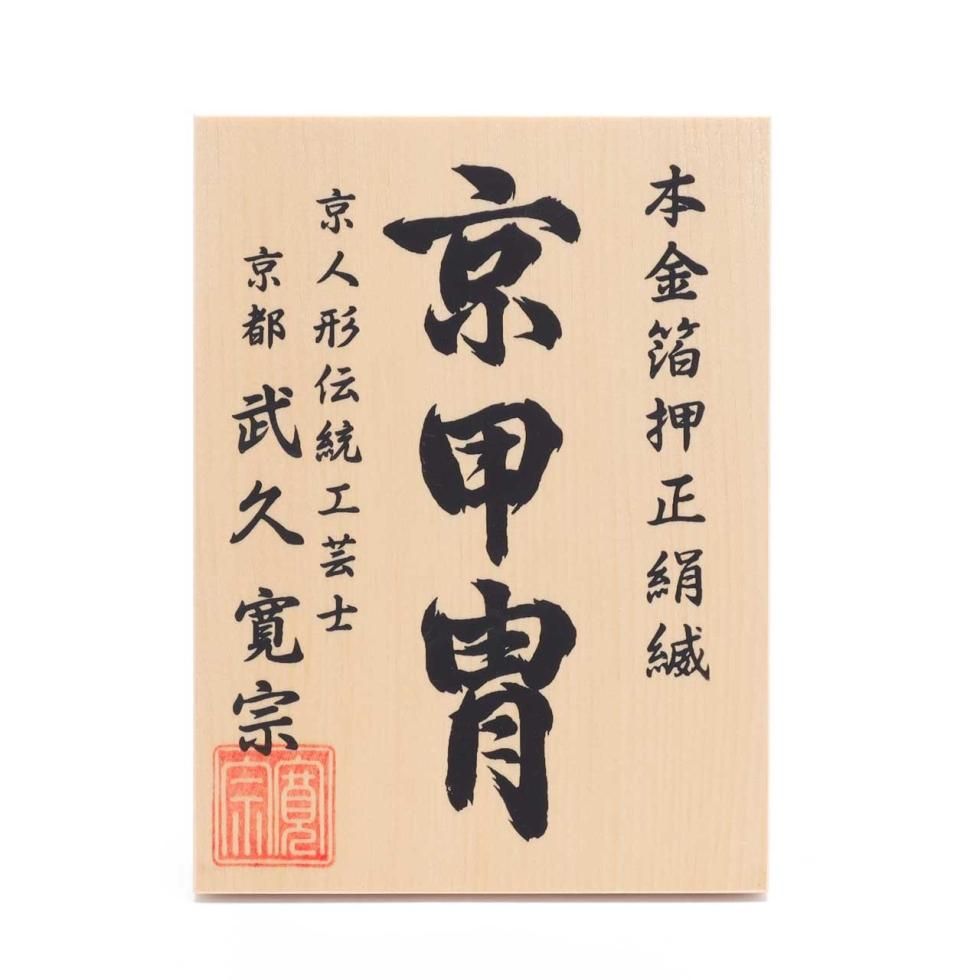 本金箔押正絹縅
京甲冑
京人形伝統工芸士
京都 武久寛宗
寛宗